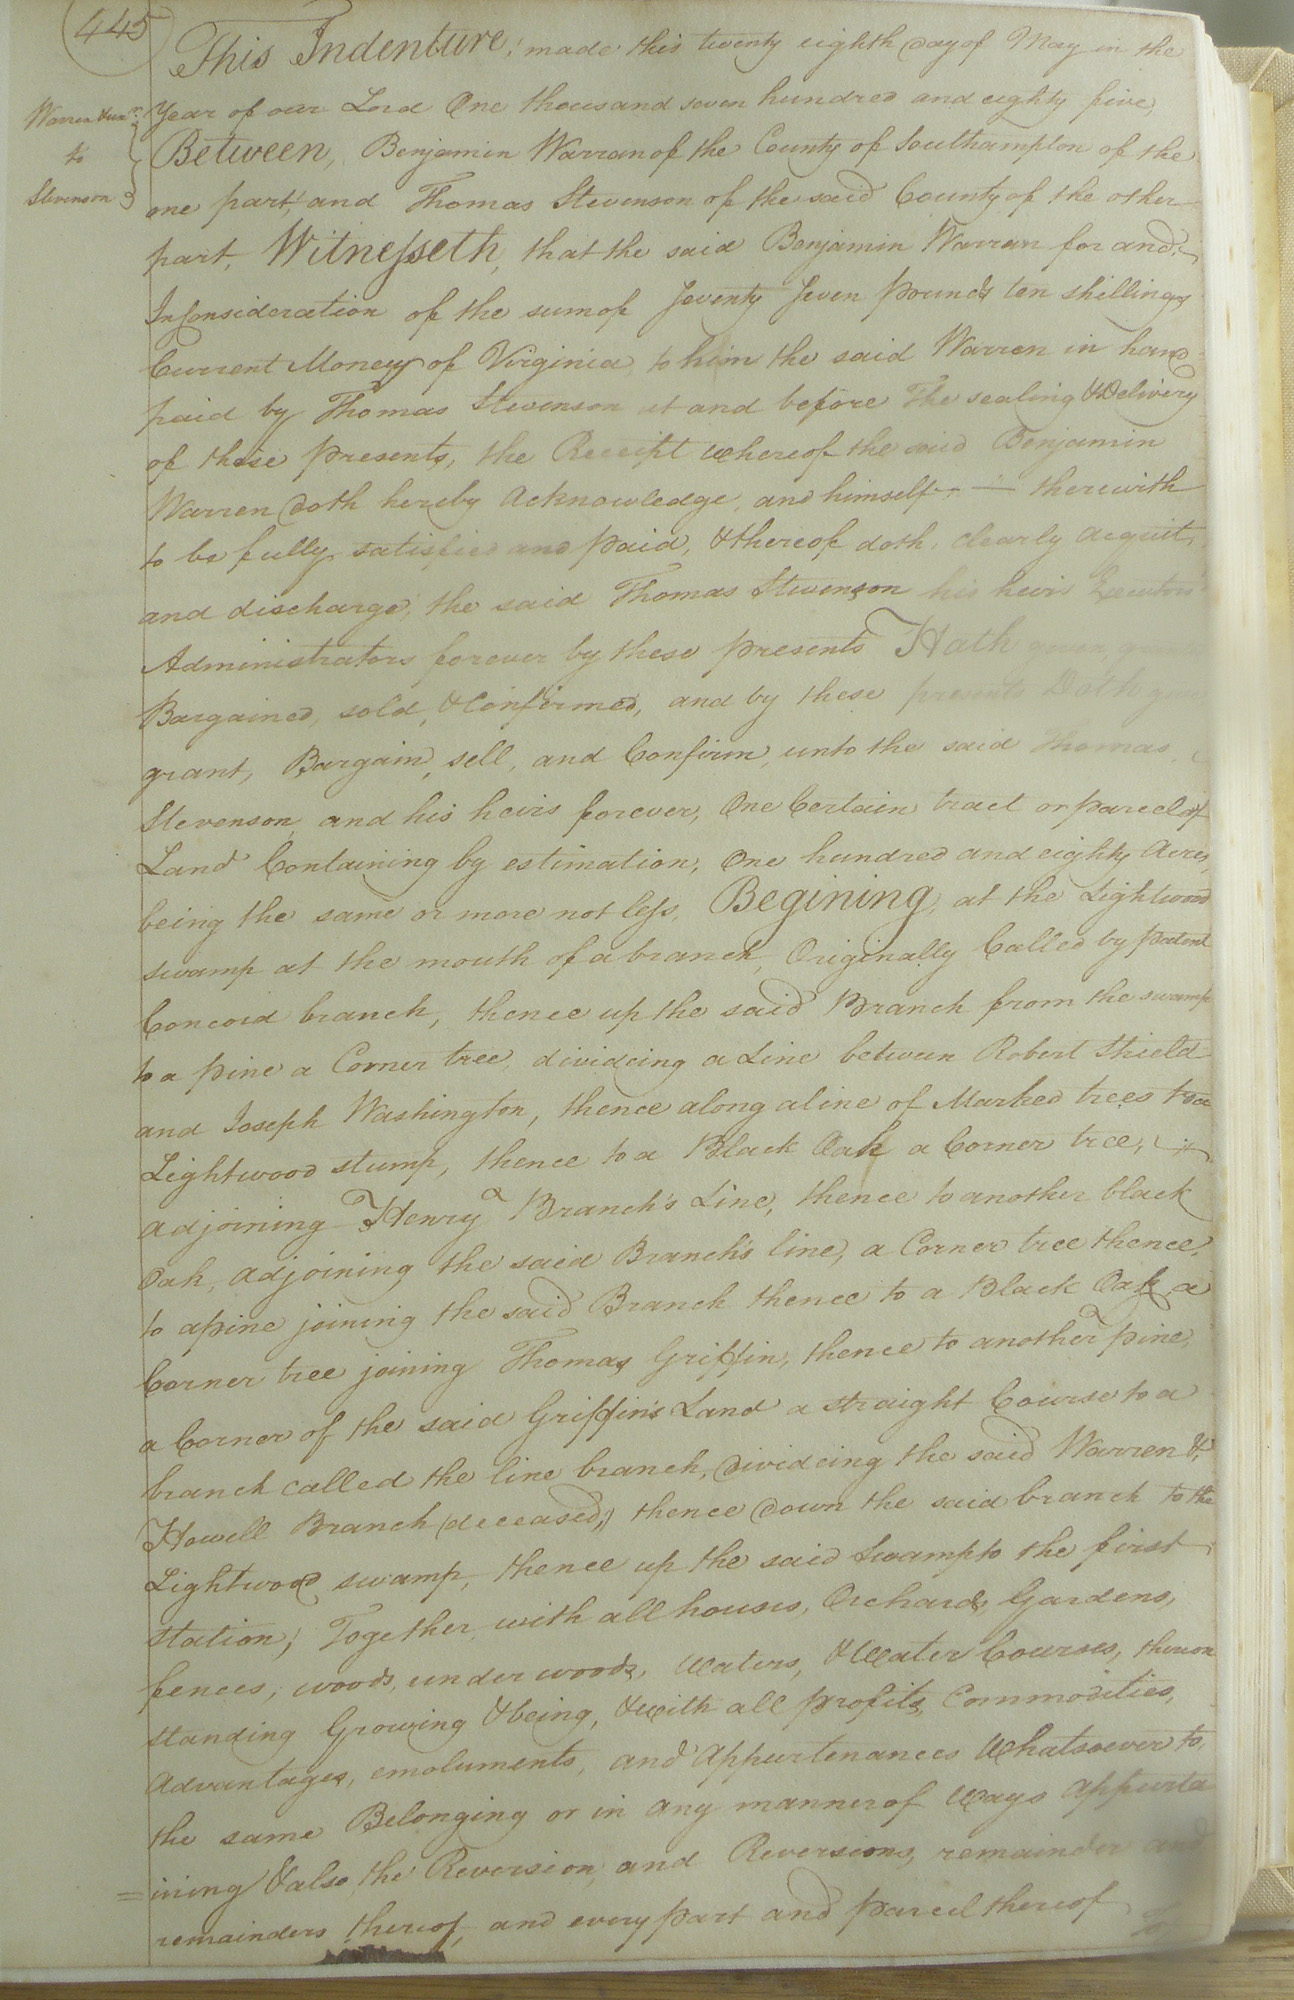 445
Warren &ux.r
to
Stevenson
This Indenture, made this twenty eighth day of May in the
Year of our Lord One thousand seven hundred and eighty five,
Between, Benjamin Warran of the County of Southampton of the
one part, and Thomas Stevenson of the said County of the other
part, Witnesseth, that the said Benjamin Warran for and
In Consideration of the sum of Seventy Seven pounds ten shillings
Current Money of Virginia to him the said Warren in hand
paid by Thomas Stevenson at and before The sealing & Delivery
of these presents, the Receipt whereof the said Benjamin
Warren doth hereby Acknowledge, and himself - - therewith
to be fully satisfied and paid, & thereof doth clearly acquit,
and discharge, the said Thomas Stevenson his heirs Executors
Administrators forever by these presents Hath given
Bargained, sold, & Confirmed, and by these presents Doth
grant, Bargain, sell, and Confirm, unto the said Thomas
Stevenson, and his heirs forever, One Certain tract or parcel of
Land Containing by estimation, One hundred and eighty Acres,
being the same or more not less, Begining, at the Lightwood
swamp at the mouth of a branch, Originally Called by patent
Concord branch, thence up the said Branch from the swamp
to a pine a Corner tree, divideing a Line between Robert Shield
and Joseph Washington, thence along a line of Marked trees to a
Lightwood stump, thence to a Black Oak a Corner tree,
adjoining Henry Branch's Line, thence to another black
Oak, adjoining the said Branch's line, a Corner tree thence,
to a pine joining the said Branch thence to a Black Oak a
Corner tree joining Thomas Griffin, thence to another pine,
a Corner of the said Griffin's Land a straight Course to a
branch called the line branch, divideing the said Warren &
Howell Branch (deceased,) thence down the said branch to the
Lightwood swamp, thence up the said Swamp to the first
station, Together with all houses, Orchards, Gardens,
fences, woods, under woods, Waters, & Water Courses, thereon
standing Growing & being, & with all profits, Commodities,
Advantages, emoluments, and Appurtenances Whatsoever to,
the same Belonging or in any manner of Ways Appurta
=ining & also the Reversion and Reversions, remainder and
remainders thereof, and every part and parcel thereof